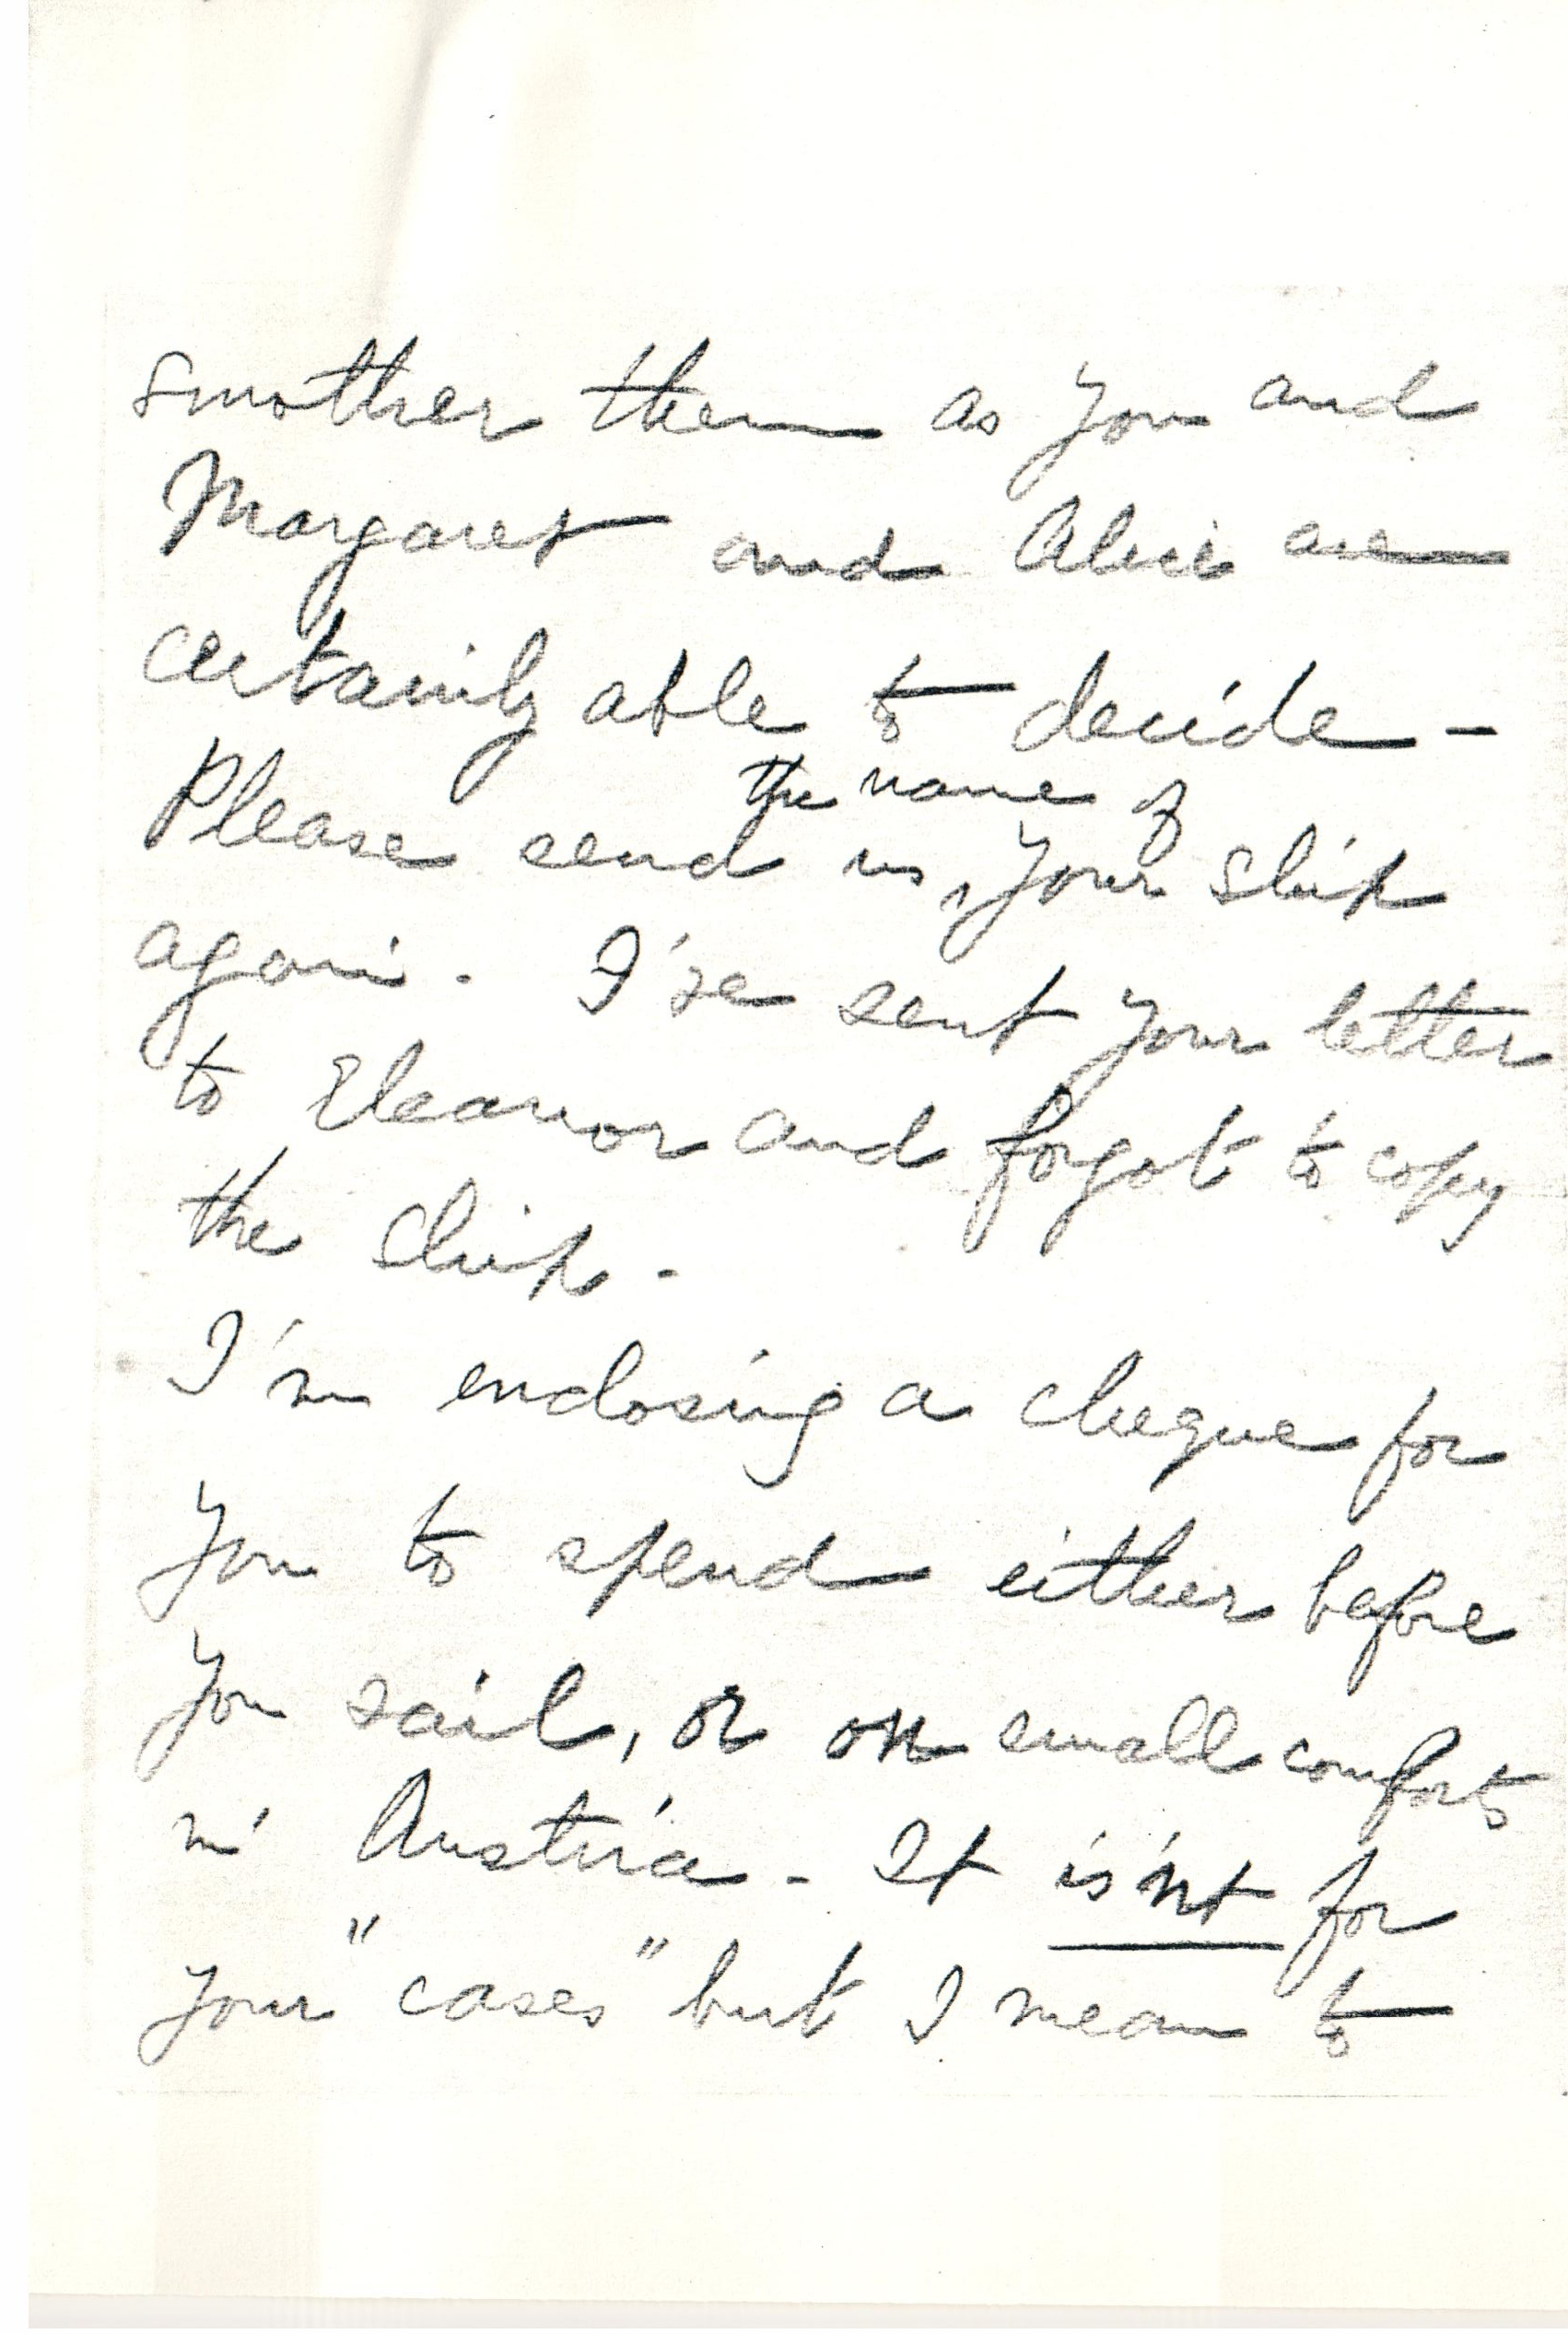 smother them as you and
Margaret and Alice are
certainly able to decide -
the name of
Please send us, your ship
again. I've sent your letter
to Eleanor and forgot to copy
the ship.
I'm enclosing a cheque for
you to spend either before
you sail, or on small comforts
in Austria - It is'nt for
your "cases" but I mean to